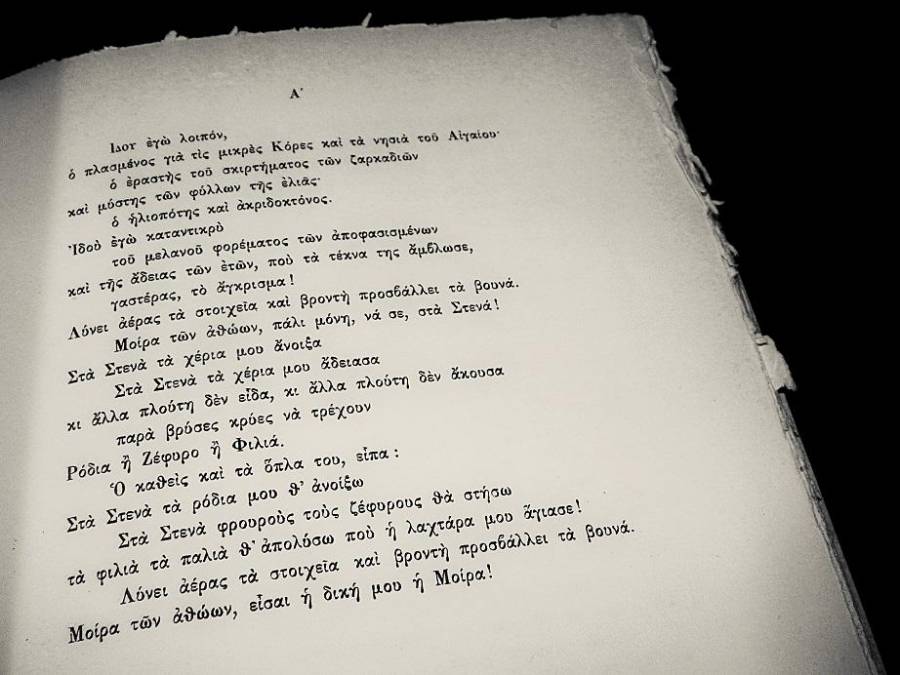 Α΄
Ιδου ἐγὼ λοιπόν,
ὁ πλασμένος γιὰ τὶς μικρὲς Κόρες καὶ τὰ νησιὰ τοῦ Αἰγαίου·
ὁ ἐραστὴς τοῦ σκιρτήματος τῶν ζαρκαδιῶν
καὶ μύστης τῶν φύλλων τῆς ἐλιᾶς·
ὁ ἡλιοπότης καὶ ἀκριδοκτόνος.
Ἰδοὺ ἐγὼ καταντικρὺ
τοῦ μελανοῦ φορέματος τῶν ἀποφασισμένων
καὶ τῆς ἄδειας τῶν ἐτῶν, ποὺ τὰ τέκνα της ἄμβλωσε,
γαστέρας, τὸ ἄγκρισμα!
Λύνει ἀέρας τὰ στοιχεῖα καὶ βροντὴ προσβάλλει τὰ βουνά.
Μοίρα τῶν ἀθώων, πάλι μόνη, νά σε, στὰ Στενά!
Στὰ Στενὰ τὰ χέρια μου ἄνοιξα
Στὰ Στενὰ τὰ χέρια μου ἄδειασα
κι ἄλλα πλούτη δὲν εἶδα, κι ἄλλα πλούτη δὲν ἄκουσα
παρὰ βρύσες κρύες νὰ τρέχουν
Ρόδια ἢ Ζέφυρο ἢ Φιλιά.
Ὁ καθεὶς καὶ τὰ ὅπλα του, εἶπα:
Στὰ Στενὰ τὰ ρόδια μου θ' ἀνοίξω
Στὰ Στενὰ φρουροὺς τοὺς ζέφυρους θὰ στήσω
τὰ φιλιὰ τὰ παλιὰ θ' ἀπολύσω ποὺ ἡ λαχτάρα μου ἅγιασε!
Λύνει ἀέρας τὰ στοιχεῖα καὶ βροντὴ προσβάλλει τὰ βουνά.
Μοίρα τῶν ἀθώων, εἶσαι ἡ δική μου ἡ Μοίρα!